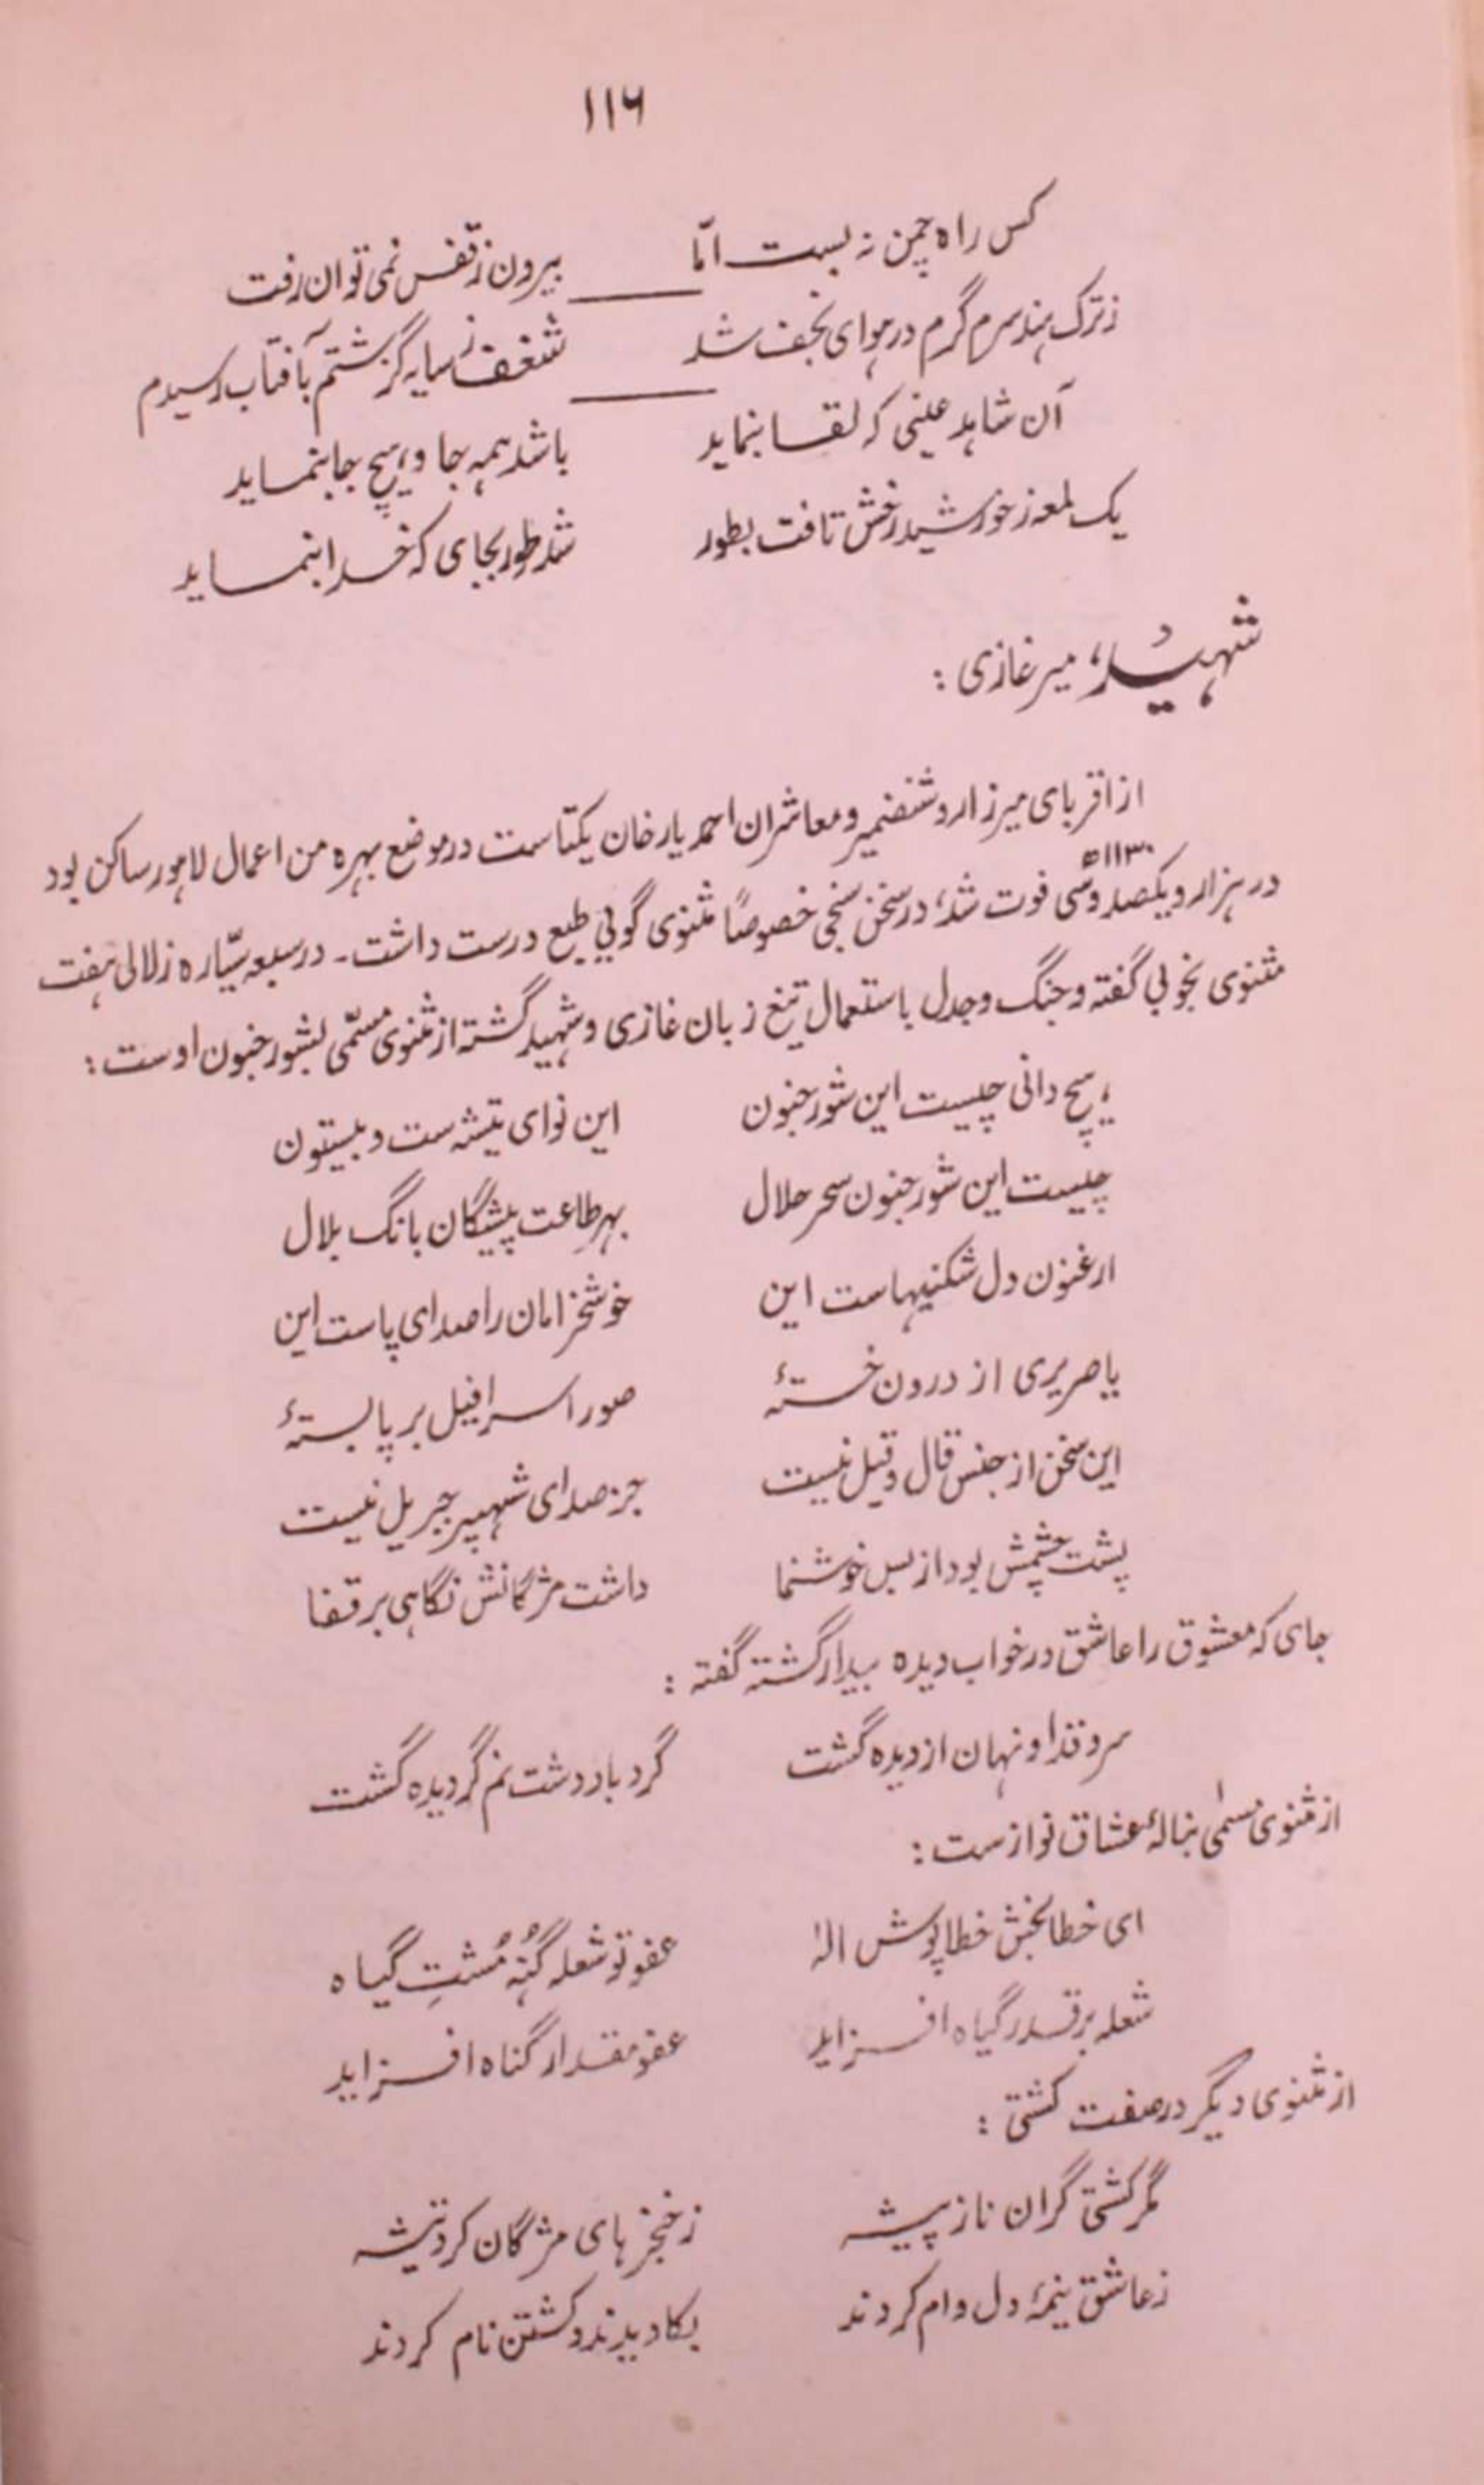 ۱۱۶
کس راه چمن نہ بست امّا بیرون ز قفس نمی توان رفت
ز ترک ہند سرم گرم در ہوای نجف شد شغف ز سایہ گزشتم بآفتاب رسیدم
آن شاہد عینی کہ لقا بنماید باشد ہمہ جا و ہیچ جا ننماید
یک لمعہ ز خورشید رخش تافت بطور شد طور بجای کہ خدا بنماید
شہیدؔ، میر غازی :
از اقربای میرزا روشنضمیر و معاشران احمد یار خان یکتاست در موضع بہرہ من اعمال لاہور ساکن بود
در ہزار و یکصد و سی ۱۱۳۰ھ فوت شد، در سخن سنجی خصوصاً مثنوی گوئی طبع درست داشت۔ در سبعہ سیّارہ زلالی ہفت
مثنوی بخوبی گفتہ و جنگ و جدل باستعمال تیغ زبان غازی و شہید گشتہ از مثنوی مسمّی بشور جنون اوست :
ہیچ دانی چیست این شور جنون این نوای تیشہ ست و بیستون
چیست این شور جنون سحر حلال بہر طاعت پیشگان بانگ بلال
ارغنون دل شکنیہاست این خوشخرامان را صدای پاست این
یا صریری از درون خستۂ صور اسرافیل بر پا بستۂ
این سخن از جنس قال و قیل نیست جز صدای شہپر جبریل نیست
پشت چشمش بود از بس خوشنما داشت مژگانش نگاہی بر قفا
جای کہ معشوق را عاشق در خواب دیدہ بیدار گشتہ گفتہ :
سرو قد او نہان از دیدہ گشت گرد باد دشت نم گردیدہ گشت
از مثنوی مسمٰی بنالۂ عشاق نوازست :
ای خطا بخش خطا پوش الٰہ عفو تو شعلہ گنُہ مُشتِ گیاہ
شعلہ بر قدر گیاہ افزاید عفو مقدار گناہ افزاید
از مثنوی دیگر در صفت کشتی :
مگر کشتی گران ناز پیشہ ز خنجر ہای مژگان کرد تیشہ
ز عاشق نیمۂ دل وام کردند بکاویدند و کشتن نام کردند